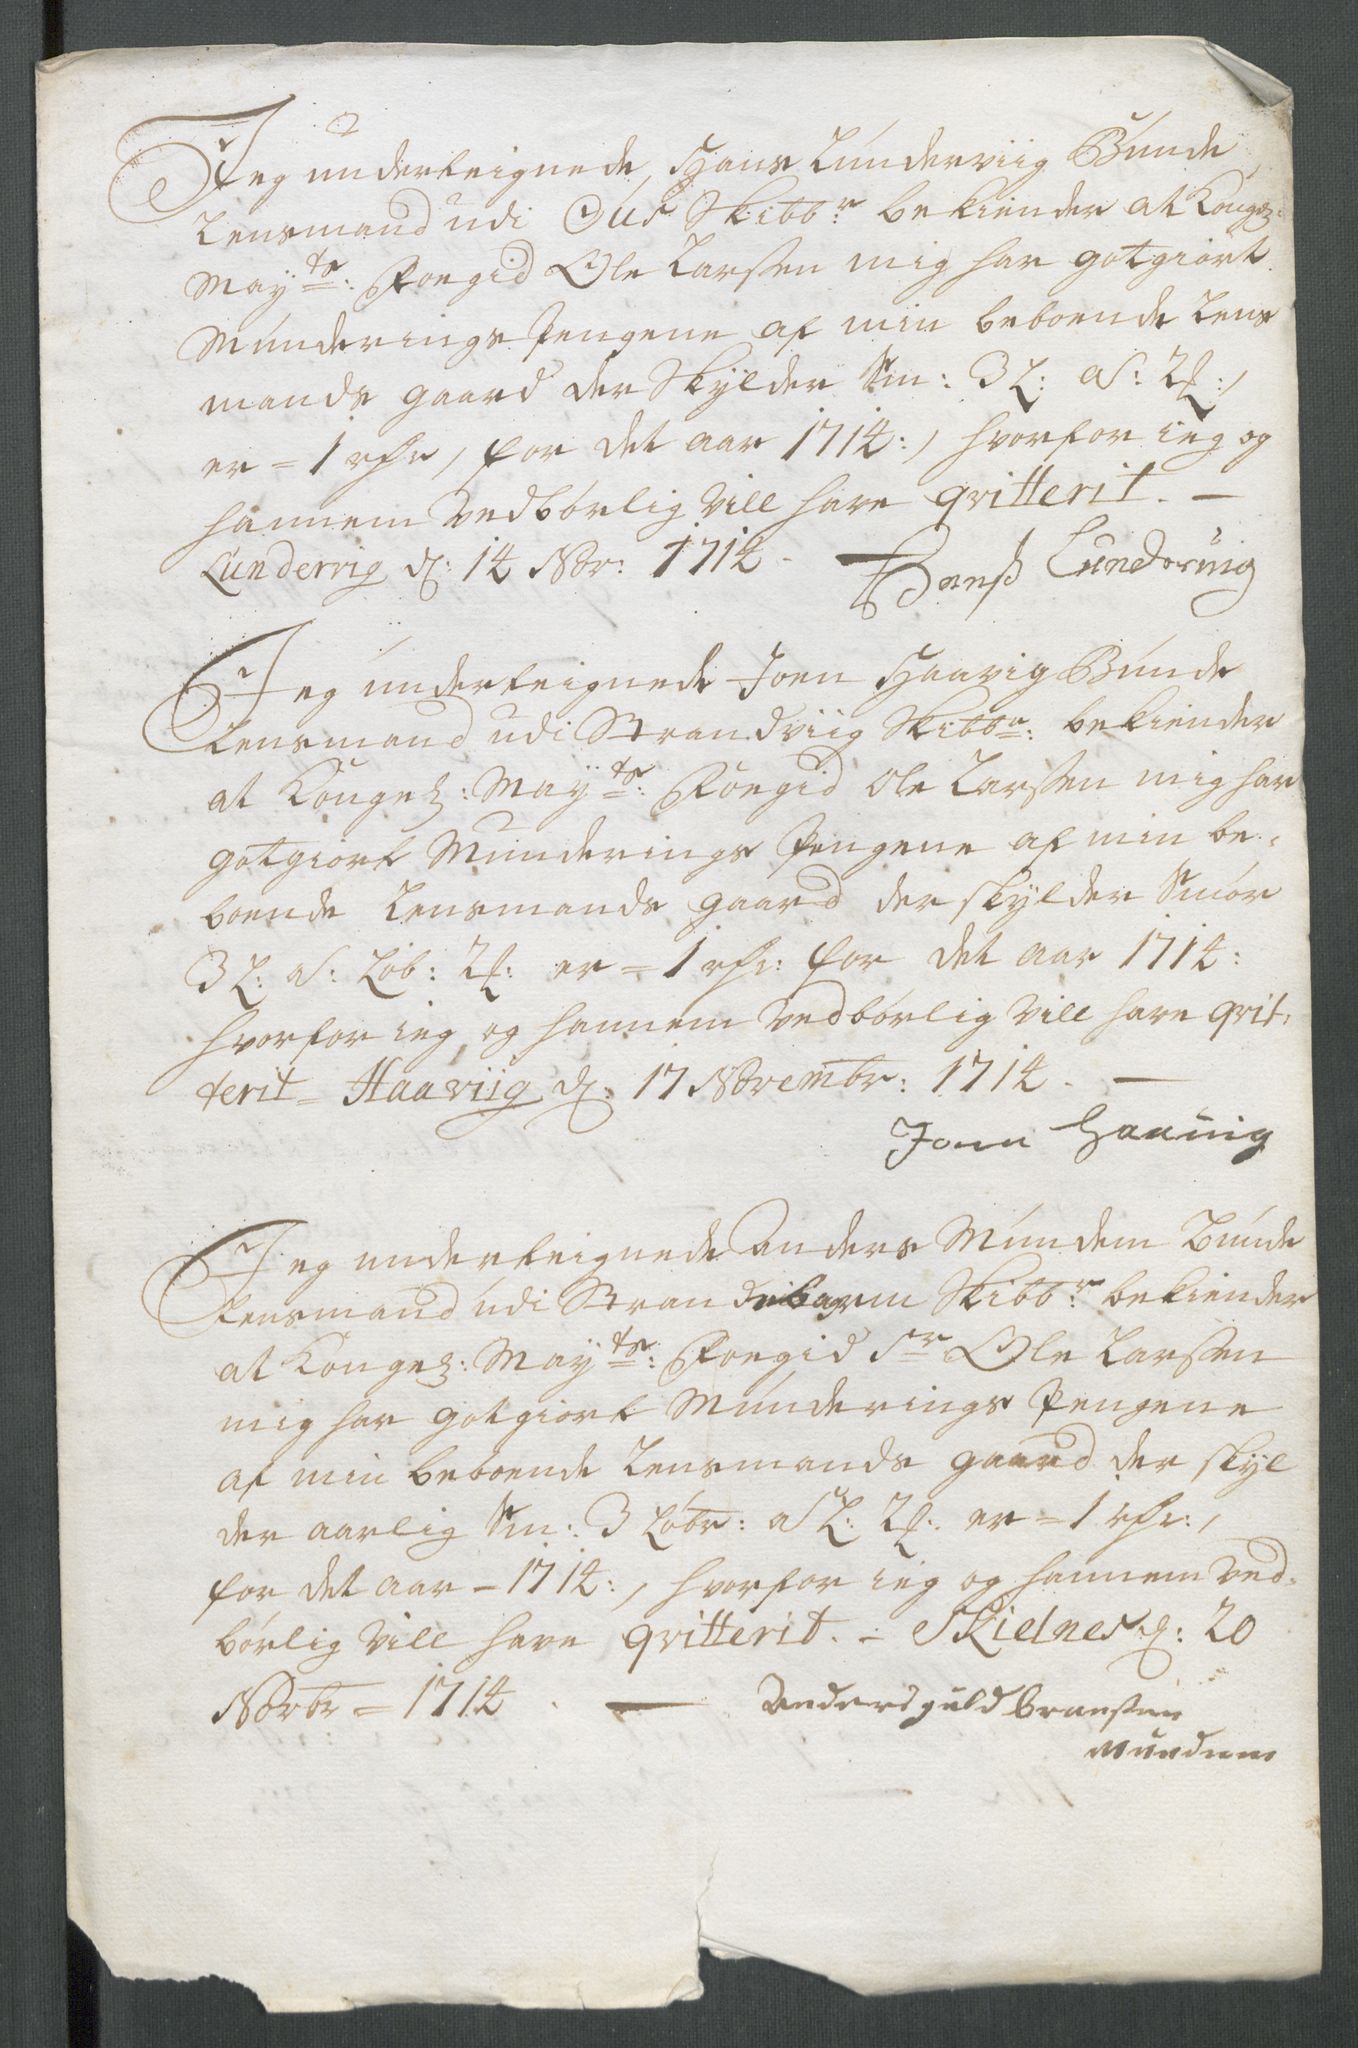 Jeg underteignede Hans Lunderviig Bunde
Lensmand udi Ous Skibbr: bekiender at Kongel:
Mayts: Foegid Ole Larsen mig har gotgiort
Munderings Pengene af min beboende Lens
mands gaard der Skylder Sm: 3 L: a S: 2 f:,
er = 1 rdr, for det aar 1714:, hvorfor ieg og
hannem vedbørlig vill have qvitterit. —
Lundervig d: 14 Nbr: 1714 - Hanß Lundervig
Jeg underteignede Joen Haavig Bunde
Lensmand udi Strandviig Skibbr: bekiender
at Kongel: Mayts: Foegid Ole Larsen mig har
gotgiort Munderings Pengene af min be-
boende Lensmands gaard der skylder Smør
3 L: a S: Løb: 2 f: er = 1 rdr: for det aar 1714:
hvorfor ieg og hannem vedbørlig vill have qvit-
terit = Haaviig d: 17 Novembr: 1714. —
Joen Haauig
Jeg underteignede Anders Mundem Bunde
Lensmand udi Strandebarm Skibbr: bekiender
at Kongel: Mayts: Foegid Sr Ole Larsen
mig har gotgiort Munderings Pengene
af min beboende Lensmands gaard der skyl
der aarlig Sm: 3 Løbr: a S L: 2 f: er = 1 rdr:,
for det aar - 1714:, hvorfor ieg og hannem ved-
børlig vill have qvitterit. - Skielnes d: 20
Novbr = 1714 . — Anders guldbransen
Mundem